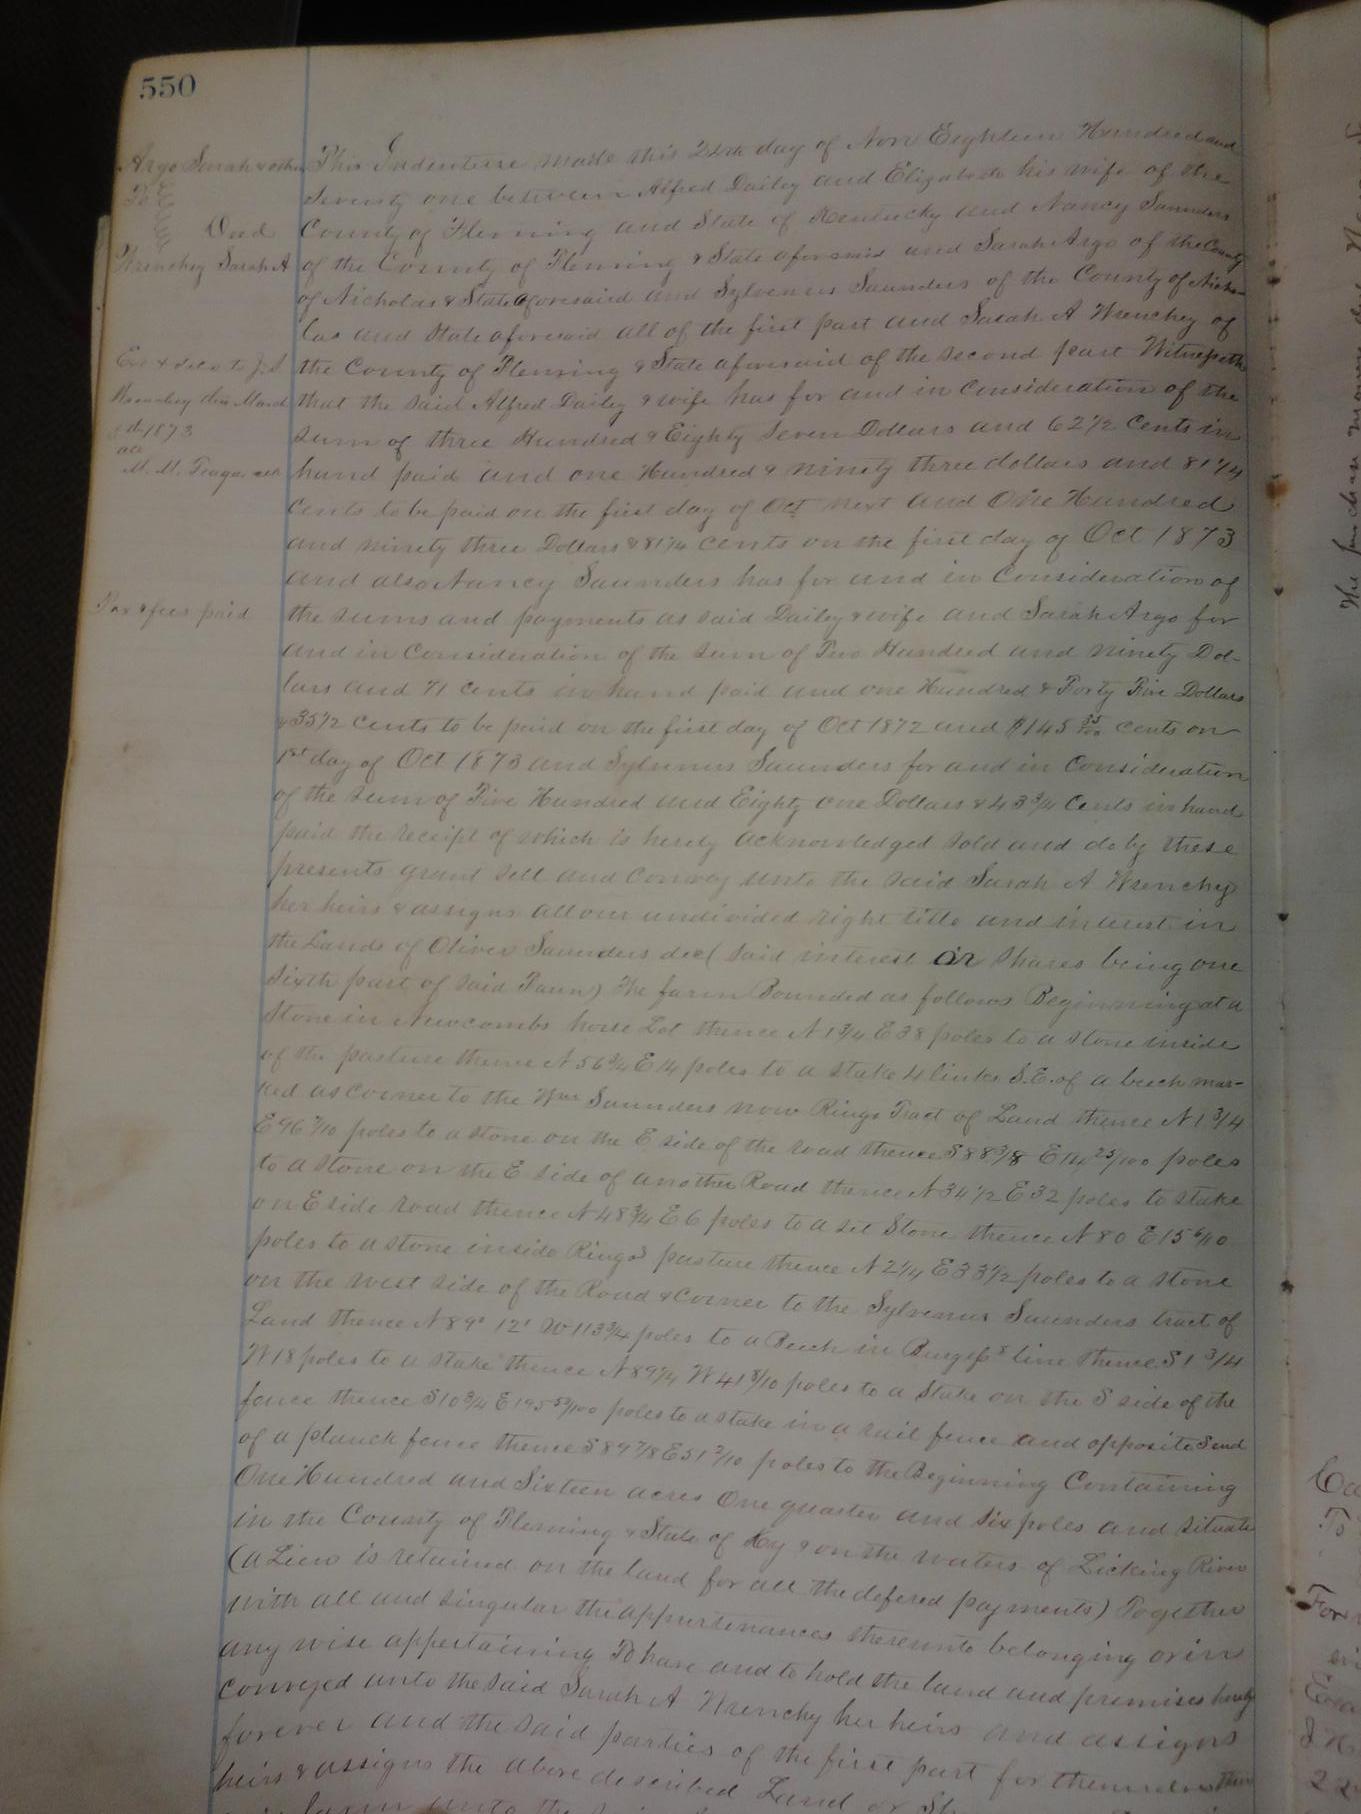 550
Argo Sarah & others
To
Deed
Wrenchey Sarah A
Exd & deld to J. S.
Wrenchey this March
1873
M. M. Teagar clk
Tax & fees paid
This Indenture made this 24th day of Nov Eighteen Hundred and
Seventy one between Alfred Dailey and Elizabeth his wife of the
County of Fleming and State of Kentucky and Nancy Saunders
of the County of Fleming & State aforesaid and Sarah Argo of the County
of Nicholas & State aforesaid and Sylvenus Saunders of the County of Nicho-
las and State aforesaid all of the first part and Sarah A Wrenchey of
the County of Fleming & State aforesaid of the second part Witnesseth
that the said Alfred Dailey & wife has for and in Consideration of the
sum of three Hundred & Eighty Seven Dollars and 62 1/2 Cents in
hand paid and one Hundred & ninety three dollars and 81 1/4
Cents to be paid on the first day of Oct next and One Hundred
and ninety three Dollars & 81 1/4 Cents on the first day of Oct 1873
and also Nancy Saunders has for and in Consideration of
the sums and payments as said Dailey & wife and Sarah Argo for
and in Consideration of the sum of Two Hundred and ninety Dol-
lars and 71 cents in hand paid and one Hundred & Forty Five Dollars
& 35 1/2 Cents to be paid on the first day of Oct 1872 and $145 35/100 Cents on
1st day of Oct 1873 and Sylvenus Saunders for and in Consideration
of the sum of Five Hundred and Eighty one Dollars & 43 3/4 Cents in hand
paid the receipt of which is herely acknowledged sold and do by these
presents grant sell and Convey unto the said Sarah A Wrenchey
her heirs & assigns all our undivided right title and interest in
the Lands of Oliver Saunders decd (said interest or Shares being one
Sixth part of said Farm) The farm Bounded as follows Beginning at a
Stone in Newcombs horse Lot thence N 1 3/4 E 38 poles to a stone inside
of the pasture thence N 56 3/4 E 14 poles to a stake 4 links S.E. of a beech mar-
ked as corner to the Wm Saunders now Rings Tract of Land thence N 1 3/4
E 96 7/10 poles to a stone on the E side of the road thence S 88 3/8 E 14 25/100 poles
to a stone on the E side of another Road thence N 34 1/2 E 32 poles to stake
on E side road thence N 48 3/4 E 6 poles to a set Stone thence N 80 E 15 6/10
poles to a stone inside Rings pasture thence N 2 1/4 E 33 1/2 poles to a stone
on the west side of the Road & Corner to the Sylvenus Saunders tract of
Land thence N 89° 12' W 113 3/4 poles to a Beech in line thence S 1 3/4
W 18 poles to a stake thence N 89 1/4 W 41 8/10 poles to a Stake on the S side of the
fence thence S 10 3/4 E 195 52/100 poles to a stake in a rail fence and opposite S end
of a planck fence thence S 89 7/8 E 51 2/10 poles to the Beginning Containing
One Hundred and Sixteen acres One quarter and Six poles and situate
in the County of Fleming & State of Ky & on the waters of Licking River
(a Lien is retained on the land for all the defered payments) Together
with all and singular the appurtenances thereunto belonging or in
any wise appertaining To have and to hold the land and premises herely
Conveyed unto the said Sarah A Wrenchy her heirs and assigns
forever and the said parties of the first part for themselves their
heirs & assigns the above described Land or
unto the